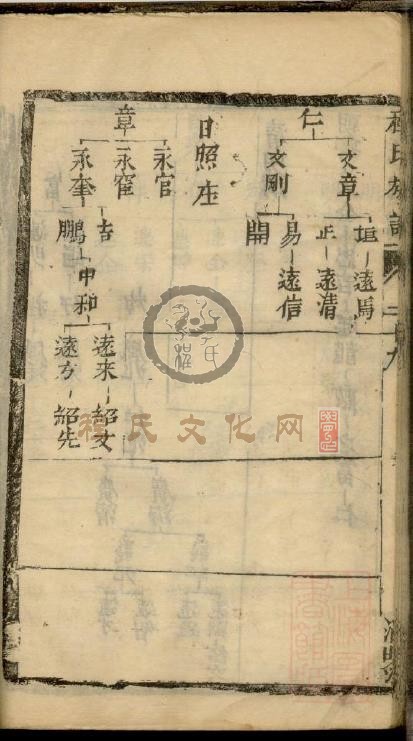 程氏族譜 二 九
仁
文章 文剛
垣 遠馬
正 遠清
易 遠信
開
日照庄
章
永官 永窒 永奎
吉 鵬
申和
遠來 紹文
遠方 紹先
程氏文化网